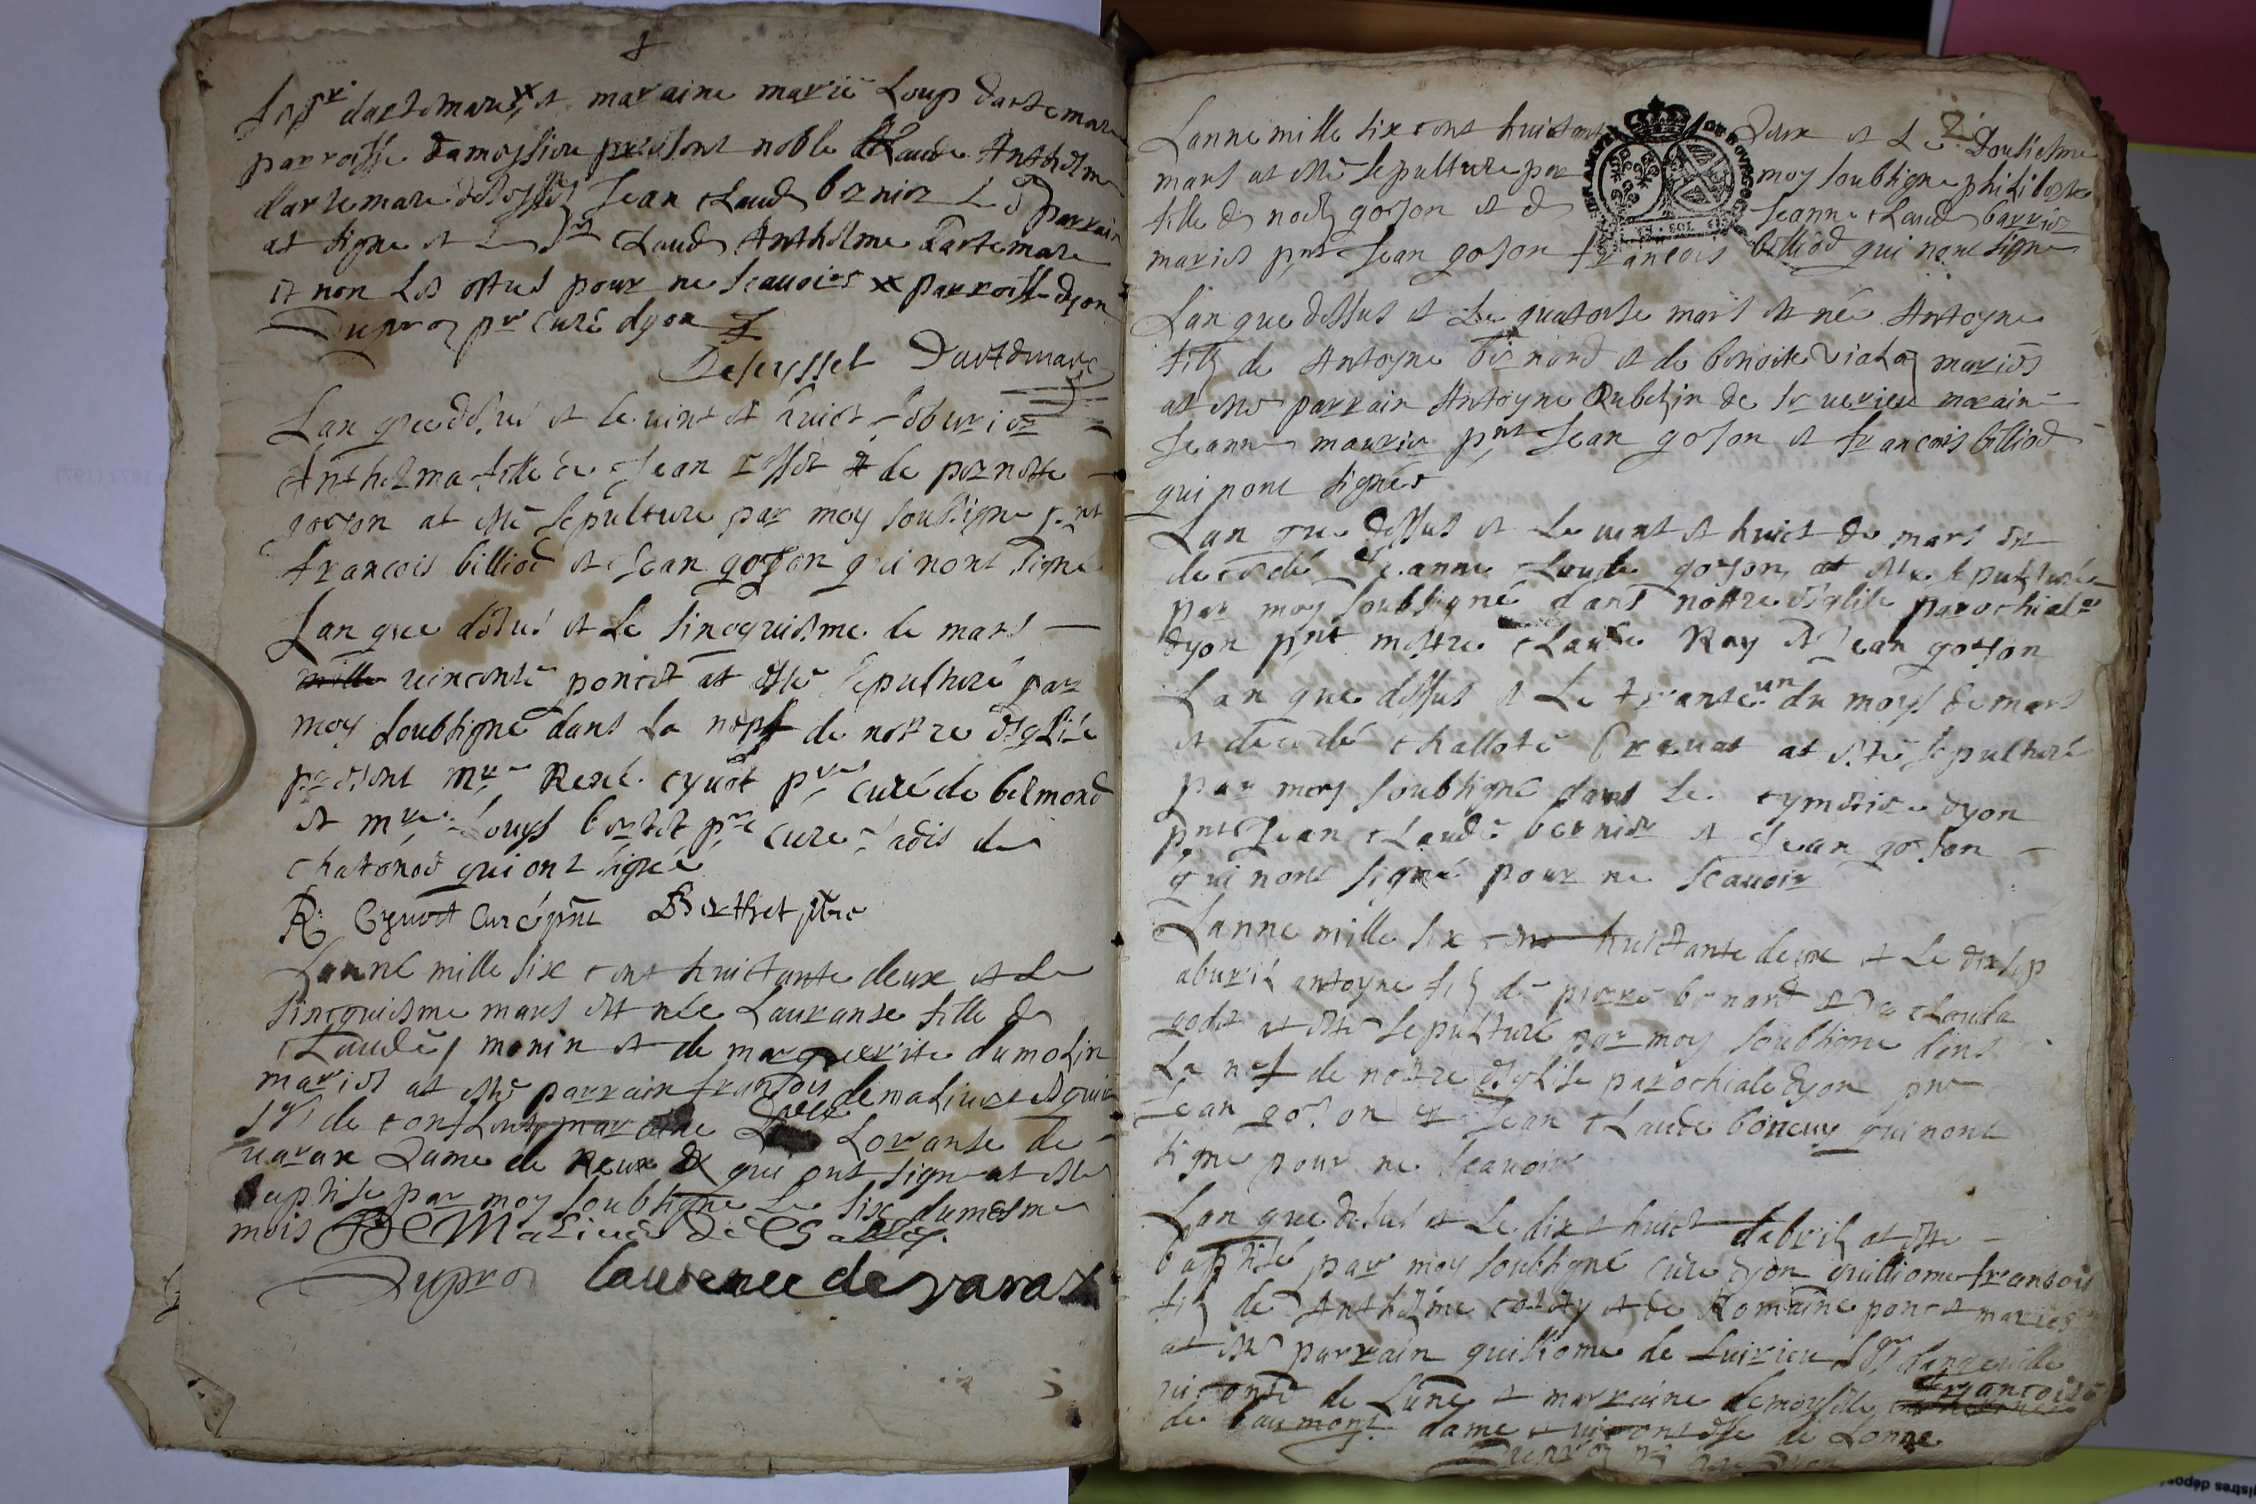 sr dartemare x et maraine marie Loup dartemare
parroisse damession present noble Claude Anthelme
dartemare Jean Claude bernier Led parrain
at signe et Led Sr Claude Anthelme dartemare
et non Les ostres pour ne scauoir x parroisse dyon
Dupro pr curé dyon
Deseyssel Dartemare
Lan que dessus et le uint et huict feburier
Anthelma fille de Jean et de pernette
goron at esté sepulture par moy soubsigne pnt
francois billiod et Jean gojon qui nont signe
Lan que dessus et Le sincquiesme de mars
mille uincente poncet at esté sepulturé par
moy soubsigné dans La nepf de nostre esglise
present mre René cyuot pre curé de belmond
et mre Louys bertet pre cure jadis de
chatonod qui ont signé
R: Cyuot Curé pnt Berthet pbre
Lanné mille six cent huictante deux et Le
sincquiesme mars est née Lauranse fille de
Claude monin et de marguerite dumolin
mariés at esté parrain francois demaliuert esquier
sgr de conflens maraine Dame Loranse de
uarax Dame de Reux qui ont signe at esté
baptisé par moy soubsigne Le six dumesme
mois De Maliuer de
Dupro laurence de varax
2
Lanne mille six cent huictante Deux et Le Dousiesme
mars at esté sepulture par moy soubsigne philiberte
fille de noel gojon et de Jeanne Claude barrier
mariés pnt Jean gojon francois billiod qui nont signe
Lan que dessus et Le quatorse mars est née Antoyne
filz de Antoyne bernard et de benoite uiala mariés
at esté parrain Antoyne Rubelin de St uerieu maraine
Jeanne maurier pnt Jean gojon et francois billiod
qui nont signés
Lan que dessus et Le uint et huict de mars est
decedé Jeanne Claude gojon at esté sepulturée
par moy soubsigné dans nottre esglise parochiale
dyon pnt mestre Claude Ray et Jean gojon
Lan que dessus et Le trante un du moys de mars
et decedé challote breuat at esté sepulturé
par moy soubsigné dans Le cymetiere dyon
pnt Jean Claude bernier et Jean gojon
qui nont signé pour ne scauoir
Lanne mille six cent huictante deux et Le disep
aburil antoyne filz de pierre benard et de Clauda
godet at esté sepulturé par moy soubsigne dens
La nef de nostre esglise parochiale dyon pnt
Jean gojon et Jean Claude qui nont
signe pour ne scauoir
Lan que dessus et Le dix et huict dabril at esté
baptisé par moy soubsigné cure dyon guilliome fransois
filz de Anthelme et de Romaine poncet mariés
at esté parrain guilliome de Luirieu sgr
uiconte de Lune et marraine demoyselle francoise
de beaumont dame et uicontesse de Lonne